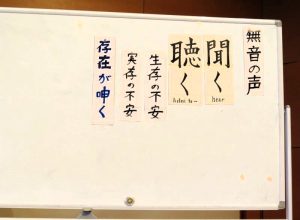 無音の声
聞く
hear
聴く
listen to
生存の不安
実存の不安
存在が呻く